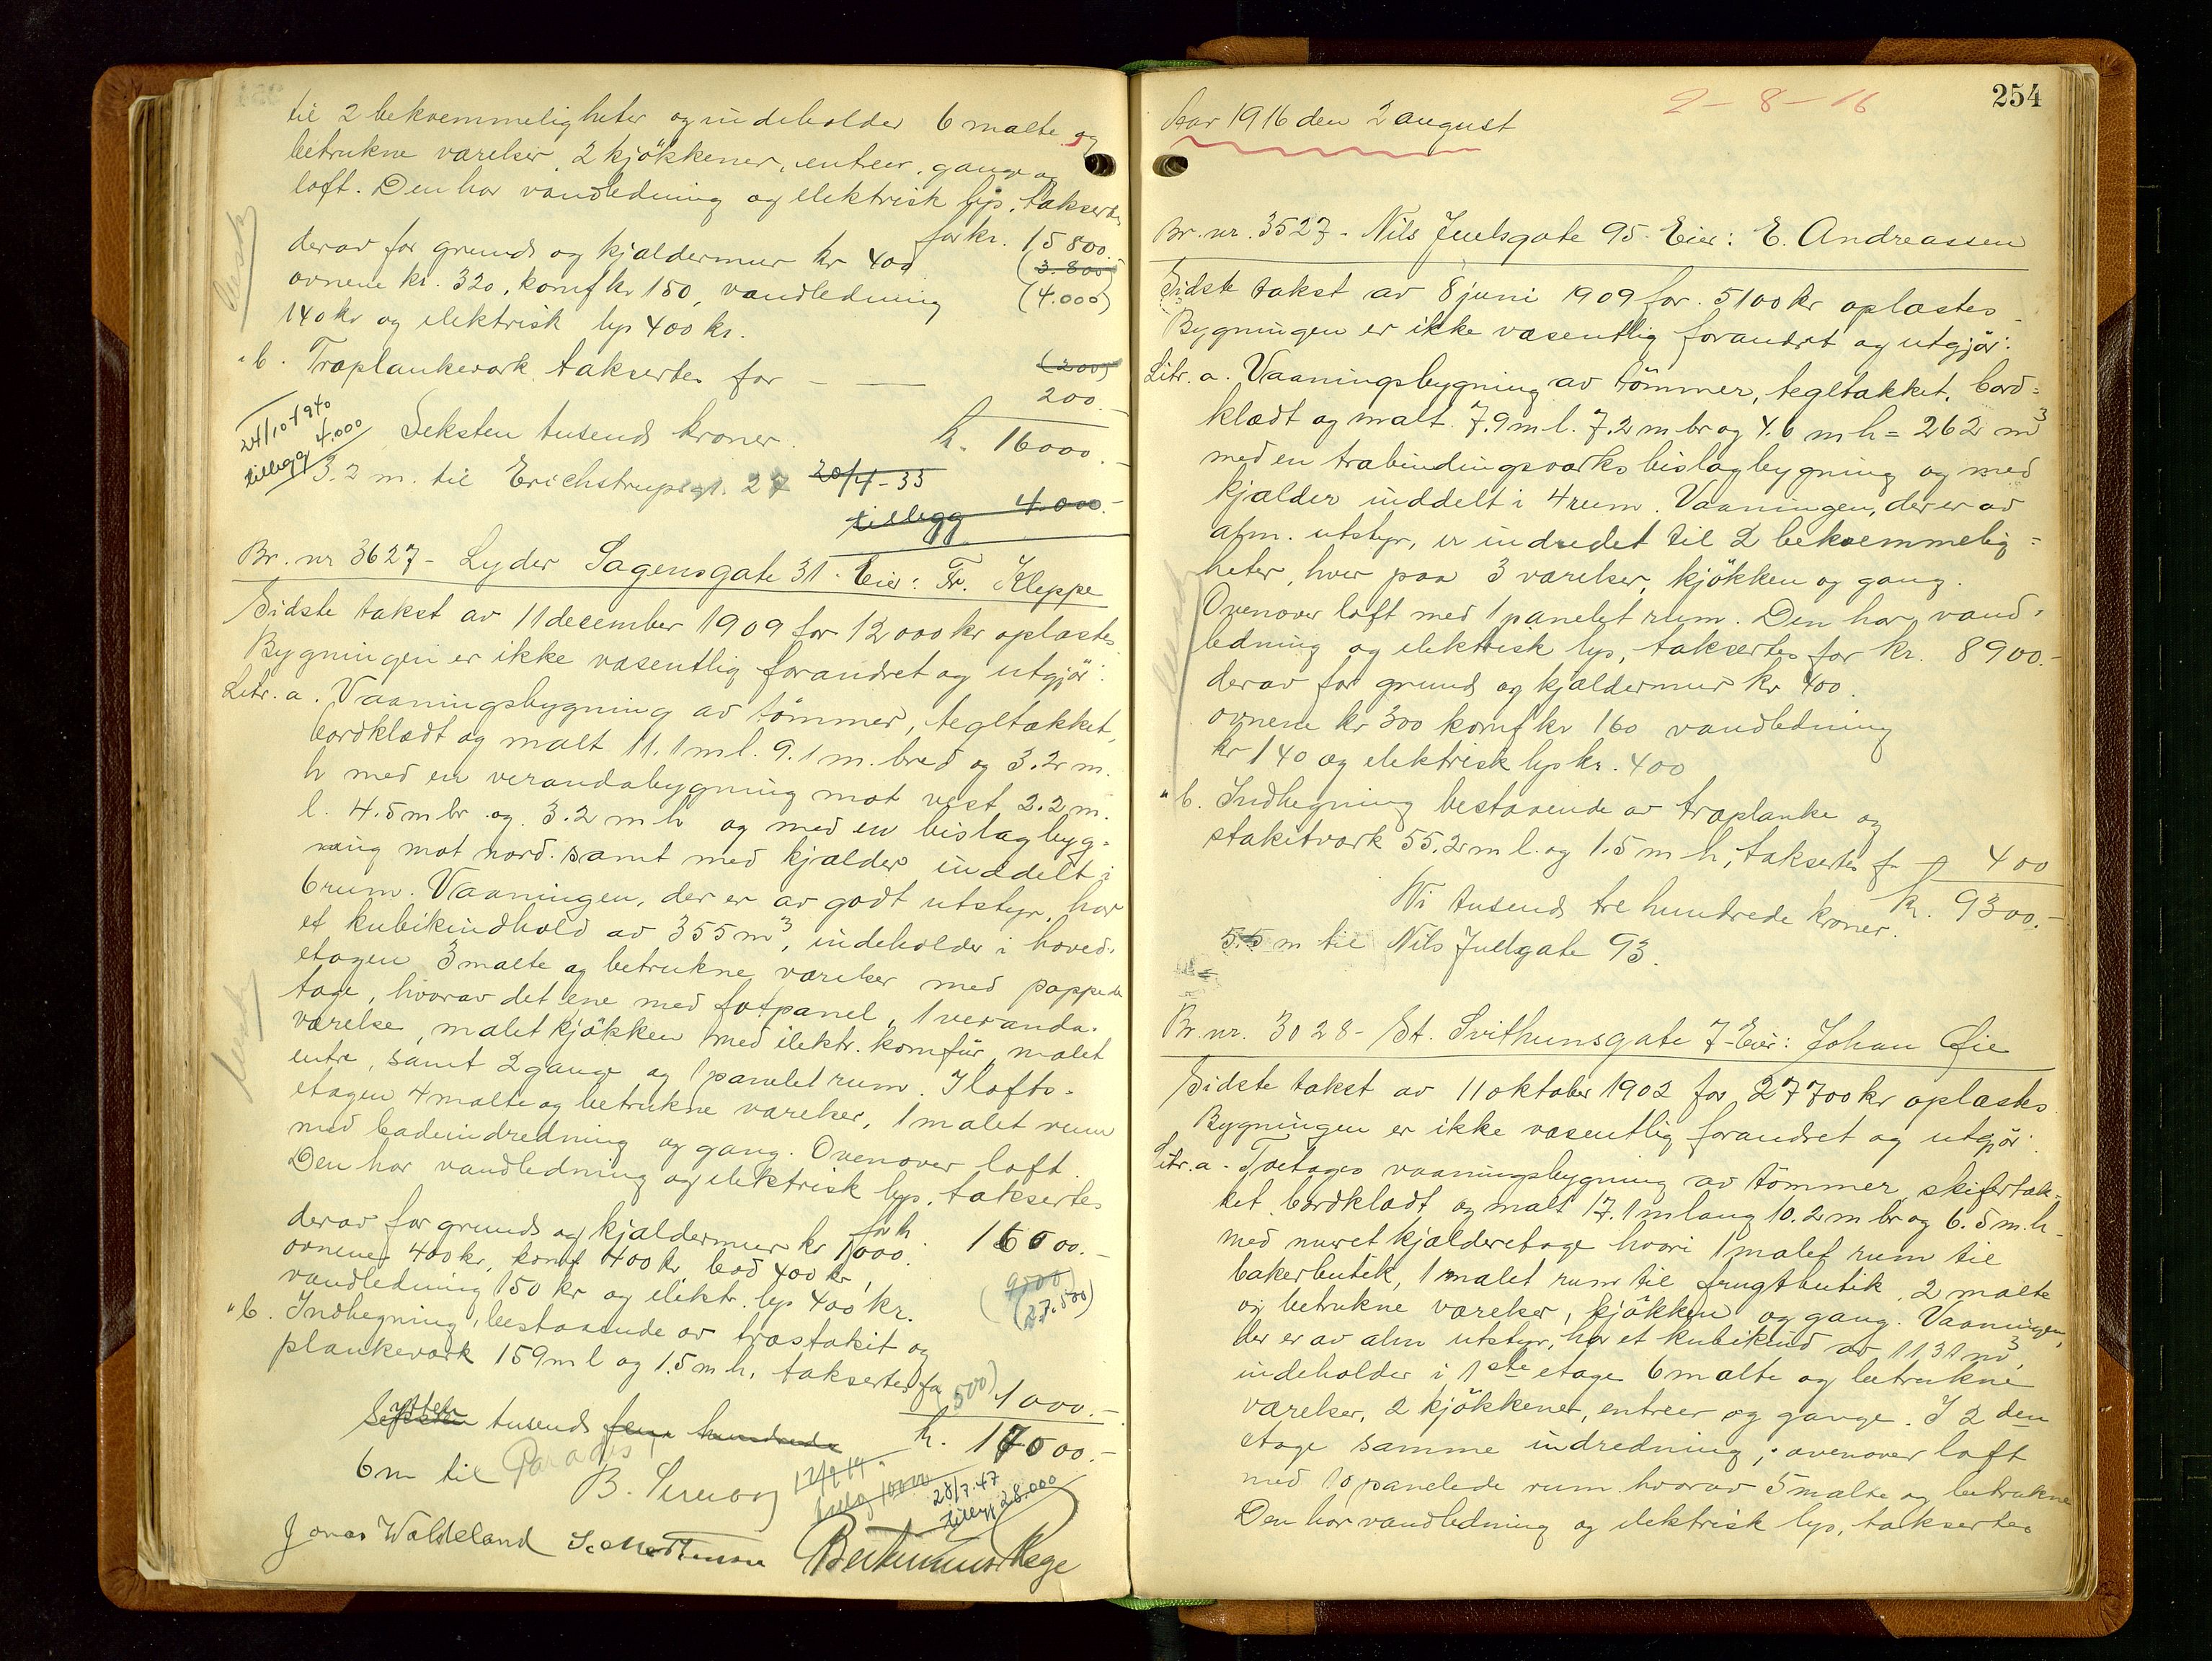 til 2 bekvemmeligheter og indeholder 6 malte og
betrukne værelser, 2 kjökkener, entreer, gange og
loft. Den har vandledning og elektrisk lys, takseres
for kr. 15800.
derav for grund og kjældermur kr 400
(3.800)
ovnene kr. 320, komf kr 150, vandledning
(4.000)
140 kr og elektrisk lys 400 kr.
" b. Træplankeverk takseres for — —
(200)
200.-
24/10-1940
tillegg 4.000
Seksten tusend kroner. kr. 16000.-
3.2 m. til Erichstrupsgt. 27 20/4-33
tillegg 4.000.-
Br. nr 3627 - Lyder Sagensgate 31. Eier: Fr. Kleppe
Sidste takst av 11 december 1909 for 12000 kr oplæstes
Bygningen er ikke væsentlig forandret og utgjör:
Litr. a. Vaaningsbygning av tömmer, tegltækket,
bordklædt og malt 11.1 m l. 9.1 m. bred og 3.2 m.
h med en verandabygning mot vest 2.2 m.
l. 4.5 m br og 3.2 m h og med en bislagbyg-
ning mot nord. samt med kjælder inddelt i
6 rum. Vaaningen, der er av godt utstyr, har
et kubikindhold av 355 m³, indeholder i hoved-
etagen 3 malte og betrukne værelser med pappede
tage, hvorav det ene med fotpanel, 1 veranda-
værelse, malet kjökken med elektr. komfür, malet
entre, samt 2 gange og 1 panelet rum. I lofts-
etagen 4 malte og betrukne værelser, 1 malet rum
med badeindredning og gang. Ovenover loft.
Den har vandledning og elektrisk lys, takseres
for kr 16000.-
derav for grund og kjældermur kr 1000.
ovnene 400 kr, komf 400 kr, bad 400 kr,
(9500)
vandledning 150 kr og elektr. lys 400 kr.
(27.500)
" b. Indhegning, bestaaende av træstakit og
plankeverk 159 m l og 1.5 m h, takseres for (500) 1000.-
Seksten sytten tusend fem hundrede kr. 17000.-
6 m til Paradis
12/9 19
28/7.47
tillegg 28.000
Jonas Waldeland
254
2-8-16
Aar 1916 den 2 august
Br. nr. 3527 - Nils Juelsgate 95. Eier: E. Andreassen
Sidste takst av 8 juni 1909 for 5100 kr oplæstes
Bygningen er ikke væsentlig forandret og utgjör:
Litr. a. Vaaningsbygning av tömmer, tegltækket, bord-
klædt og malt 7.9 m l. 7.2 m br og 4.6 m h = 262 m³
med en træbindingsværks bislagbygning og med
kjælder inddelt i 4 rum. Vaaningen, der er av
alm. utstyr, er indredet til 2 bekvemmelig-
heter, hver paa 3 værelser, kjökken og gang.
Ovenover loft med 1 panelet rum. Den har vand-
ledning og elektrisk lys, takseres for kr. 8900.-
derav for grund og kjældermur kr 400.
ovnene kr 300 komf kr 160 vandledning
kr 140 og elektrisk lys kr. 400
" b. Indhegning bestaaende av træplanke og
stakitverk 55.2 m l. og 1.5 m h, takseres for 400
Ni tusend tre hundrede kroner. kr. 9300.-
5.5 m til Nils Juelsgate 93.
Br. nr. 3028 - St. Svithunsgate 7 - Eier: Johan Øie
Sidste takst av 11 oktober 1902 for 27700 kr oplæstes
Bygningen er ikke væsentlig forandret og utgjör:
Litr. a - Toetages vaaningsbygning av tömmer, skifertæk-
ket, bordklædt og malt 17.1 m lang 10.2 m br og 6.5 m. h
med muret kjælderetage hvori 1 malet rum til
bakerbutik, 1 malet rum til frugtbutik, 2 malte
og betrukne værelser, kjökken og gang. Vaaningen,
der er av alm utstyr, har et kubikind av 1131 m³,
indeholder i 1ste etage 6 malte og betrukne
værelser, 2 kjökkener, entreer og gange. I 2den
etage samme indredning; ovenover loft
med 10 panelede rum hvorav 5 malte og betrukne
Den har vandledning og elektrisk lys, takseres